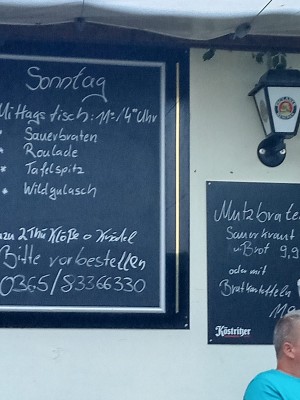 Sonntag
Mittagstisch: 11°°/14°°Uhr
* Sauerbraten
* Roulade
* Tafelspitz
* Wildgulasch
dazu 2 Thü Klöße o Knödel
Bitte vorbestellen
0365/83366330
Mutzbraten
Sauerkraut
u Brot 9,9
oder mit
Bratkartoffeln
Köstritzer